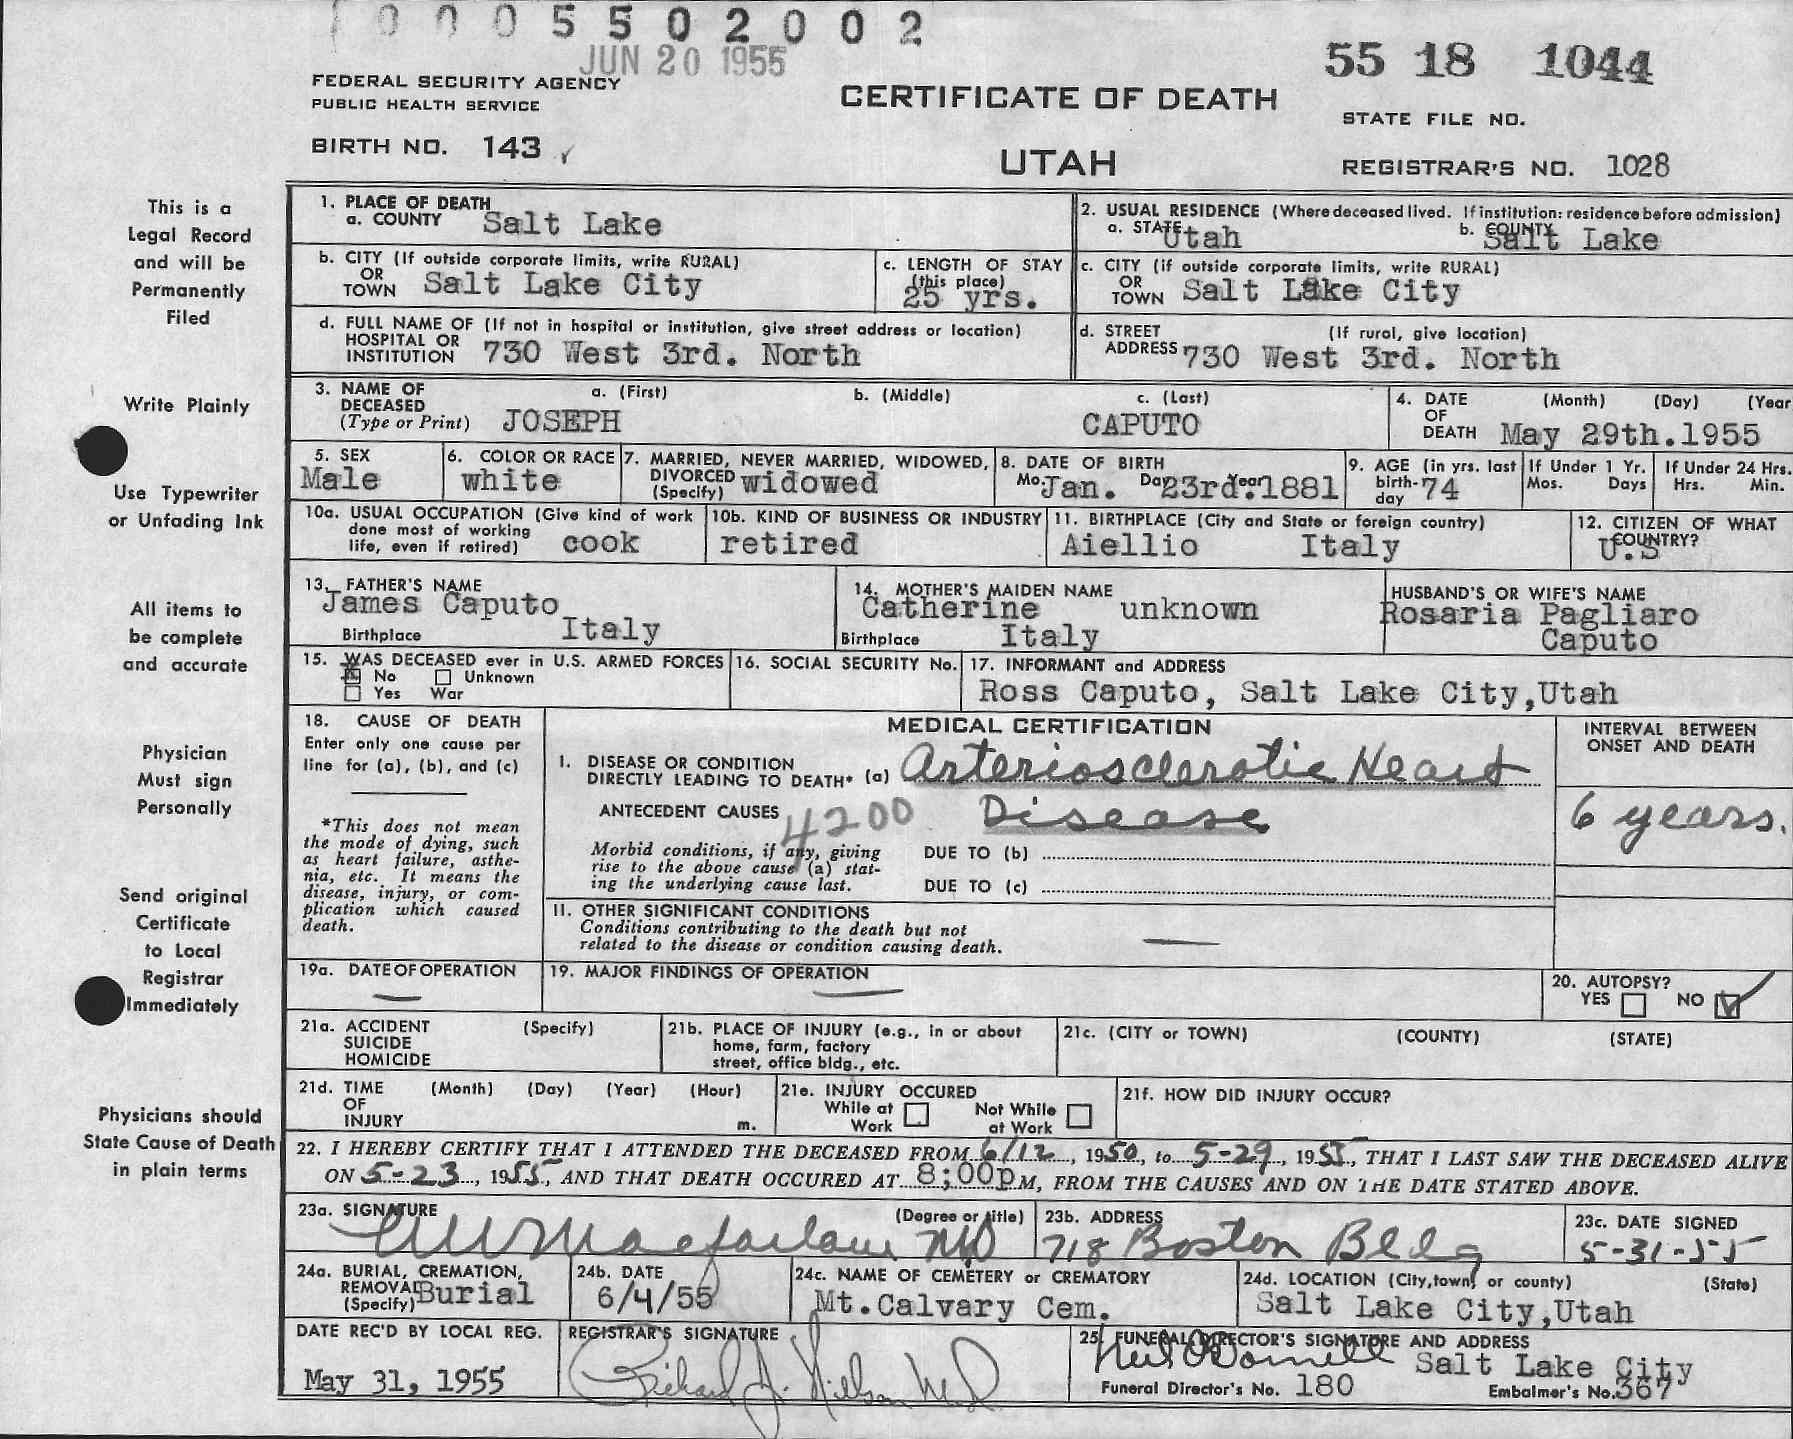 0005502002
JUN 20 1955
55 18 1044
FEDERAL SECURITY AGENCY
PUBLIC HEALTH SERVICE
CERTIFICATE OF DEATH
STATE FILE NO.
BIRTH NO. 143
UTAH
REGISTRAR'S NO. 1028
This is a
Legal Record
and will be
Permanently
Filed
Write Plainly
Use Typewriter
or Unfading Ink
All items to
be complete
and accurate
Physician
Must sign
Personally
Send original
Certificate
to Local
Registrar
Immediately
Physicians should
State Cause of Death
in plain terms
1. PLACE OF DEATH
a. COUNTY Salt Lake
2. USUAL RESIDENCE (Where deceased lived. If institution: residence before admission)
a. STATE Utah b. COUNTY Salt Lake
b. CITY (If outside corporate limits, write RURAL)
OR
TOWN Salt Lake City
c. LENGTH OF STAY
(this place)
25 yrs.
c. CITY (if outside corporate limits, write RURAL)
OR
TOWN Salt Lake City
d. FULL NAME OF (If not in hospital or institution, give street address or location)
HOSPITAL OR
INSTITUTION 730 West 3rd. North
d. STREET (If rural, give location)
ADDRESS 730 West 3rd. North
3. NAME OF a. (First) b. (Middle) c. (Last)
DECEASED
(Type or Print) JOSEPH CAPUTO
4. DATE (Month) (Day) (Year
OF
DEATH May 29th.1955
5. SEX
Male
6. COLOR OR RACE
white
7. MARRIED, NEVER MARRIED, WIDOWED,
DIVORCED
(Specify) widowed
8. DATE OF BIRTH
Mo. Jan. Da 23rd. 1881
9. AGE (in yrs. last
birth-
day 74
If Under 1 Yr.
Mos. Days
If Under 24 Hrs.
Hrs. Min.
10a. USUAL OCCUPATION (Give kind of work
done most of working
life, even if retired) cook
10b. KIND OF BUSINESS OR INDUSTRY
retired
11. BIRTHPLACE (City and State or foreign country)
Aiellio Italy
12. CITIZEN OF WHAT
COUNTRY?
U.S
13. FATHER'S NAME
James Caputo
Birthplace Italy
14. MOTHER'S MAIDEN NAME
Catherine unknown
Birthplace Italy
HUSBAND'S OR WIFE'S NAME
Rosaria Pagliaro
Caputo
15. WAS DECEASED ever in U.S. ARMED FORCES
No Unknown
Yes War
16. SOCIAL SECURITY No.
17. INFORMANT and ADDRESS
Ross Caputo, Salt Lake City,Utah
18. CAUSE OF DEATH
Enter only one cause per
line for (a), (b), and (c)
*This does not mean
the mode of dying, such
as heart failure, asthe-
nia, etc. It means the
disease, injury, or com-
plication which caused
death.
MEDICAL CERTIFICATION
INTERVAL BETWEEN
ONSET AND DEATH
I. DISEASE OR CONDITION
DIRECTLY LEADING TO DEATH* (a) Arteriosclerotic Heart
ANTECEDENT CAUSES 4200 Disease 6 years.
Morbid conditions, if any, giving
rise to the above cause (a) stat-
ing the underlying cause last.
DUE TO (b)
DUE TO (c)
II. OTHER SIGNIFICANT CONDITIONS
Conditions contributing to the death but not
related to the disease or condition causing death. —
19a. DATE OF OPERATION
—
19. MAJOR FINDINGS OF OPERATION
—
20. AUTOPSY?
YES NO
21a. ACCIDENT (Specify)
SUICIDE
HOMICIDE
21b. PLACE OF INJURY (e.g., in or about
home, farm, factory
street, office bldg., etc.
21c. (CITY or TOWN) (COUNTY) (STATE)
21d. TIME (Month) (Day) (Year) (Hour)
OF
INJURY m.
21e. INJURY OCCURED
While at Work Not While at Work
21f. HOW DID INJURY OCCUR?
22. I HEREBY CERTIFY THAT I ATTENDED THE DECEASED FROM 6/12, 1950, to 5-29, 1955, THAT I LAST SAW THE DECEASED ALIVE
ON 5-23, 1955, AND THAT DEATH OCCURED AT 8;00p M, FROM THE CAUSES AND ON THE DATE STATED ABOVE.
23a. SIGNATURE (Degree or title)
Macfarlane MD
23b. ADDRESS
718 Boston Bldg
23c. DATE SIGNED
5-31-55
24a. BURIAL, CREMATION,
REMOVAL
(Specify) Burial
24b. DATE
6/4/55
24c. NAME OF CEMETERY or CREMATORY
Mt.Calvary Cem.
24d. LOCATION (City,town, or county) (State)
Salt Lake City,Utah
DATE REC'D BY LOCAL REG.
May 31, 1955
REGISTRAR'S SIGNATURE
Richard J. Nielson M.D.
25. FUNERAL DIRECTOR'S SIGNATURE AND ADDRESS
Neil O'Donnell Salt Lake City
Funeral Director's No. 180 Embalmer's No. 367